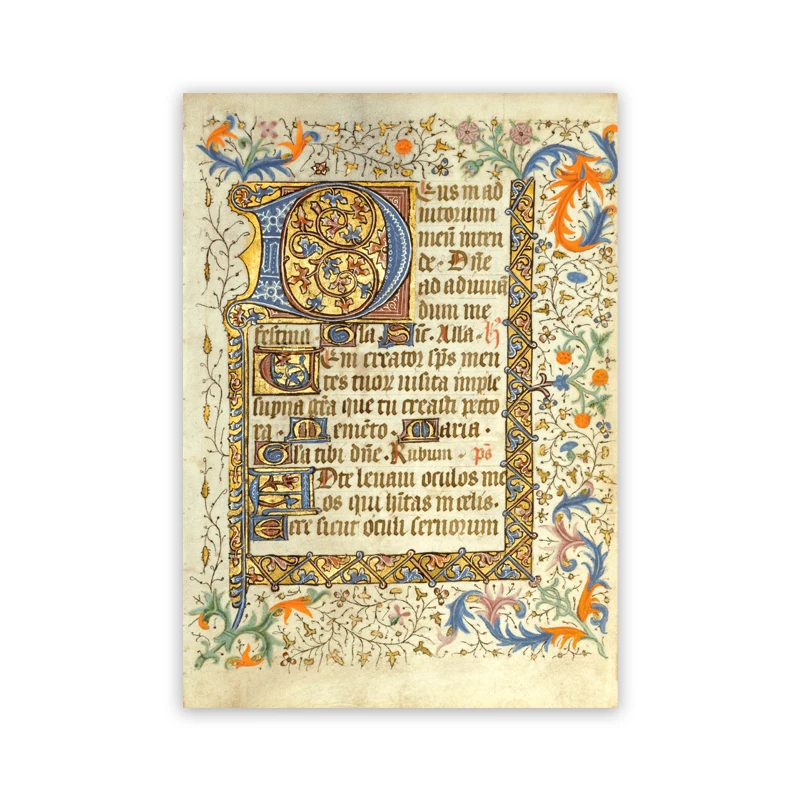 Deus in ad
iutorium
meū inten
de · Dn̄e
ad adiuuā
dum me
festina · Gl̄a · Sic̄ · Alla · H
Ueni creator sp̄s men
tes tuor uisita imple
supna gr̄a que tu creasti pecto
ra · Memēto · Maria ·
Gl̄a tibi dn̄e · Rubum · p̄s
Ad te leuaui oculos me
os qui h̄itas in celis.
Ecce sicut oculi seruorum